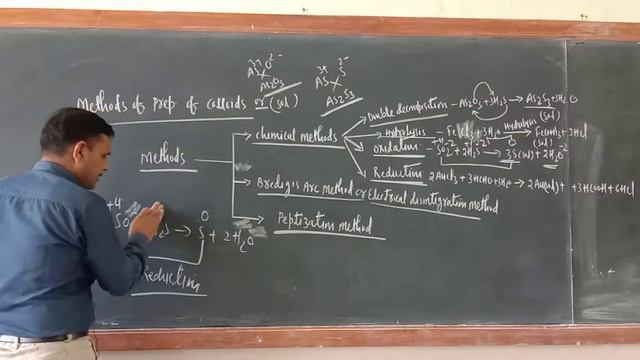 3+ 2-
As O
As2O3
3+ 2-
As S
As2S3
Methods of prep of colloids or (sol)
Methods
chemical methods
Double decomposition - As2O3 + 3H2S → As2S3 + 3H2O
(sol)
Hydrolysis - FeCl3 + 3H2O Hydrolysis → Fe(OH)3 + 3HCl
(sol)
Oxidation - SO2 + 2H2S → 3S(sol) + 2H2O
Reduction 2AuCl3 + 3HCHO + 3H2O → 2Au(sol) + 3HCOOH + 6HCl
Bredig's Arc method or Electrical disintegration method
Peptization method
+4 0
SO → S + 2H2O
Reduction